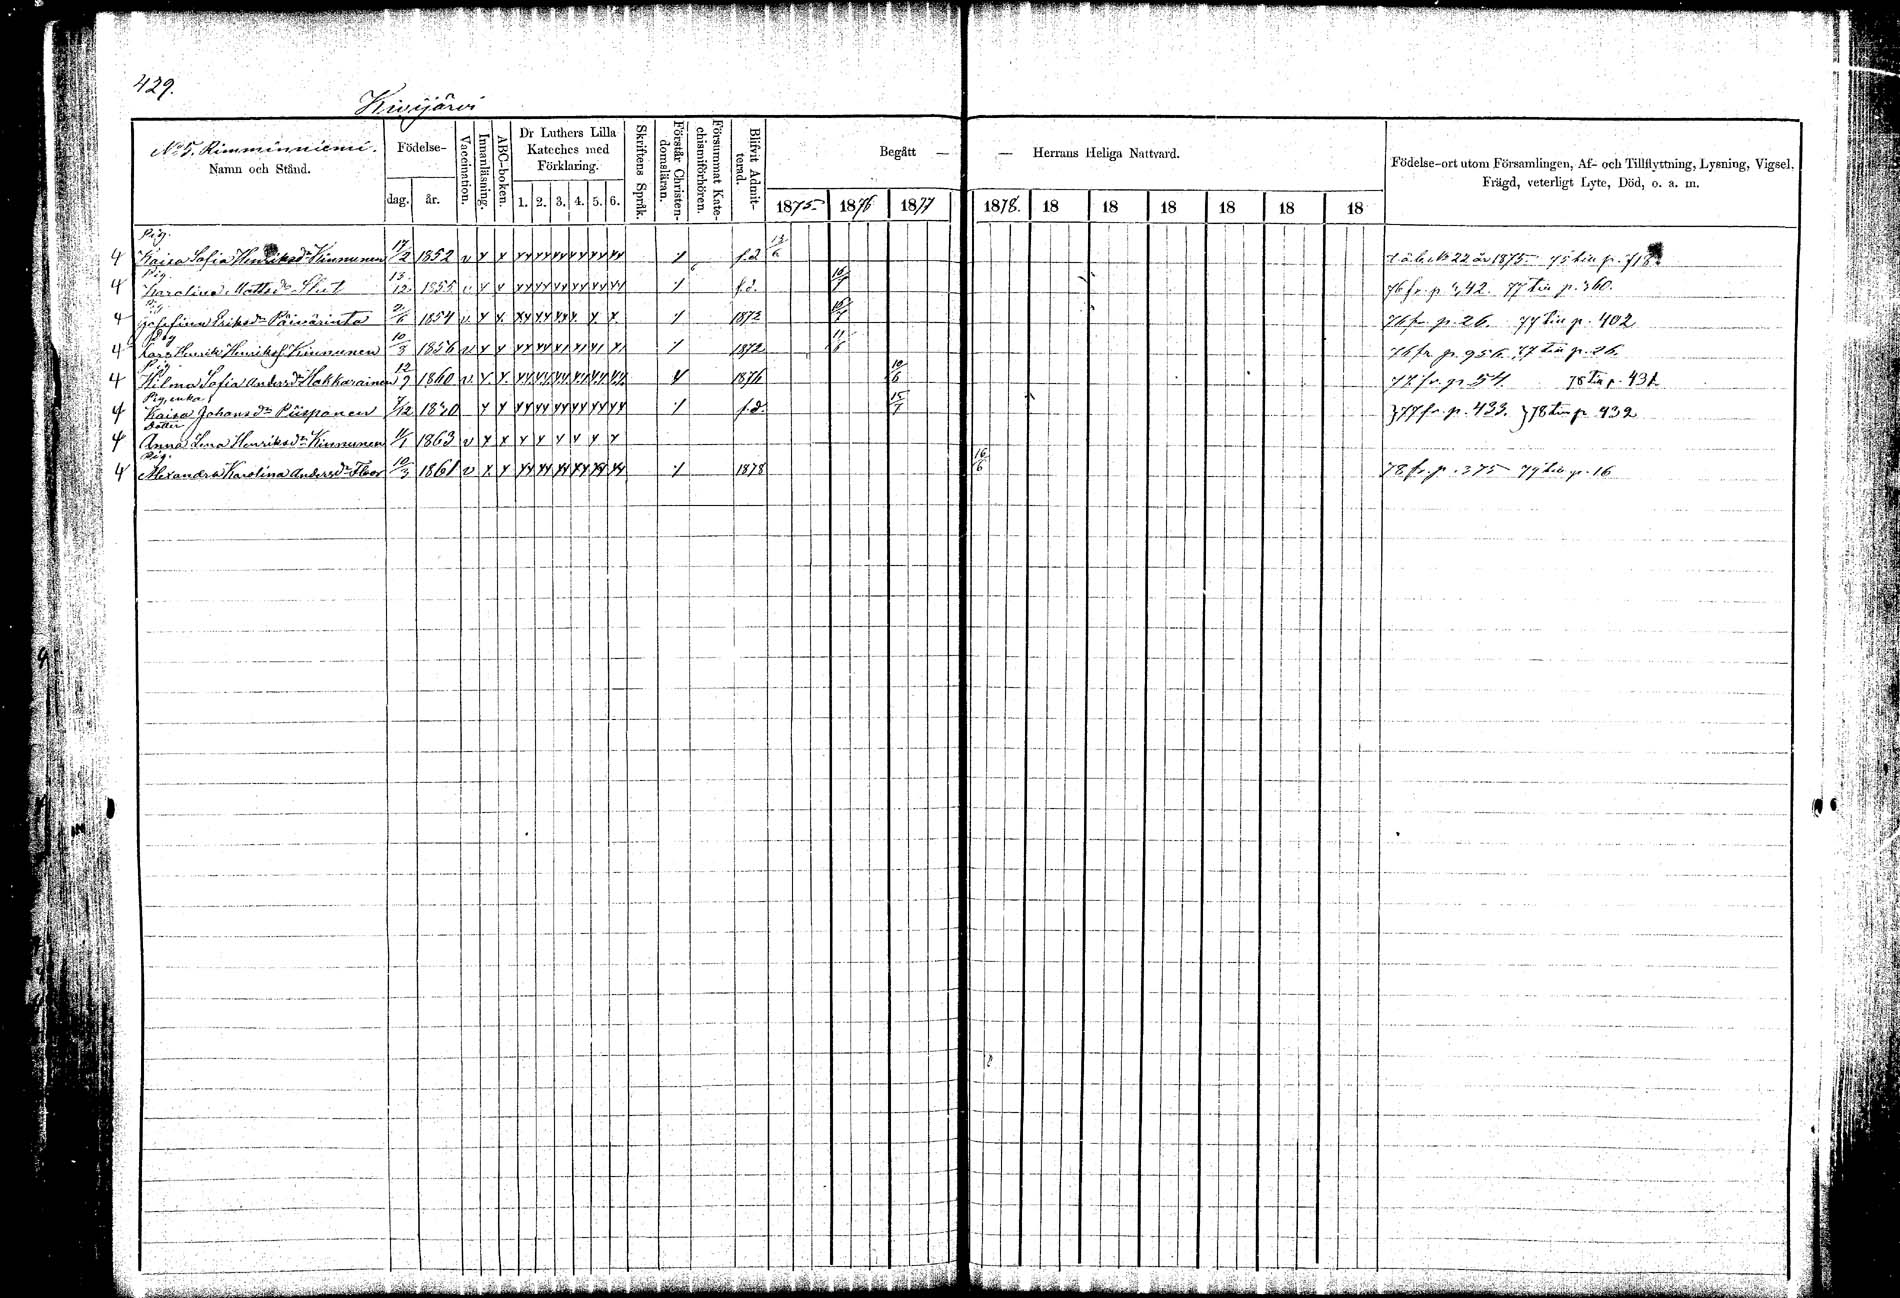 429.
Kivijärvi
No 5. Rimminniemi.
Namn och Stånd.
Födelse-
dag. år.
Vaccination.
Innanläsning.
ABC-boken.
Dr Luthers Lilla Kateches med Förklaring.
1. 2. 3. 4. 5. 6.
Skriftens Språk.
Förstår Christendomsläran.
Försummat Katechismiförhören.
Blifvit Admitterad.
Begått — — Herrans Heliga Nattvard.
1875 1876 1877 1878. 18 18 18 18 18 18
Födelse-ort utom Församlingen, Af- och Tillflyttning, Lysning, Vigsel, Frägd, veterligt Lyte, Död, o. a. m.
Pig.
4 Kaisa Sofia Henriksdr Kinnunen 17/2 1852 v x x xx xx xx xx xx xx / f.d. 13/6 22 år 1875 75 till p. 718
Pig.
4 Karolina Mattsdr 13/12 1855 v x x xx xx xx xx xx xx / f.d. 77 till p. 360.
4 Josefina Eriksdr Päivärinta 1854 v. x x. xx xx xx x. x. x / 1872 76 fr. p. 26. 77 till p. 402
4 Lars Henrik Henrikss Kinnunen 10/3 1856 v x x / 1872 11/6 76 fr. p. 956. 77 till p. 26.
Pig.
4 Hilma Sofia Andersdr Hakkarainen 12/9 1860 v. x. x. xx xx xx xx xx xx 1876 10/6 77 fr. p 54. 78 till p. 431
Pig, enka
4 Kaisa Johansdr Piispanen 7/12 1820 x x xx xx xx xx xx xx / f.d. 15/7 77 fr. p. 433. 78 till p. 432
Dotter
4 Anna Lena Henriksdr Kinnunen 4/1 1863 v x x x x x x x x
Pig.
4 Alexandra Karolina Andersdr Floor 10/3 1861 v x x xx xx xx xx xx xx / 1878 16/6 78 fr. p. 375 79 till p. 16